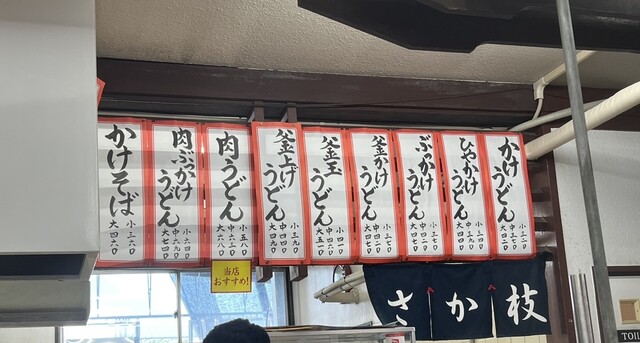 かけうどん
小三二〇
中三七〇
大四二〇
ひやかけうどん
小三四〇
中三九〇
大四四〇
ぶっかけうどん
小三七〇
中四二〇
大四七〇
釜かけうどん
小三七〇
中四二〇
大四七〇
釜玉うどん
小四一〇
釜上げうどん
小三九〇
中四四〇
大四九〇
肉うどん
中六三〇
肉ぶっかけうどん
小六四〇
中六九〇
大七四〇
かけそば
小三六〇
大四六〇
当店
おすすめ!
さか枝